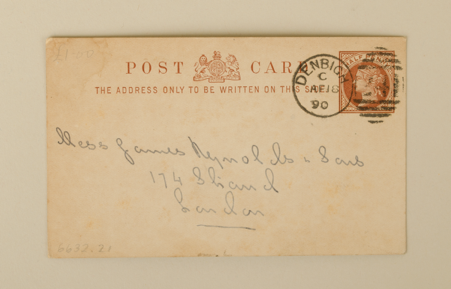 £1-00
POST CARD
HALF PENNY
THE ADDRESS ONLY TO BE WRITTEN ON THIS SIDE
DENBIGH
C
AP 18
90
Mess James Reynolds & Sons
174 Strand
London